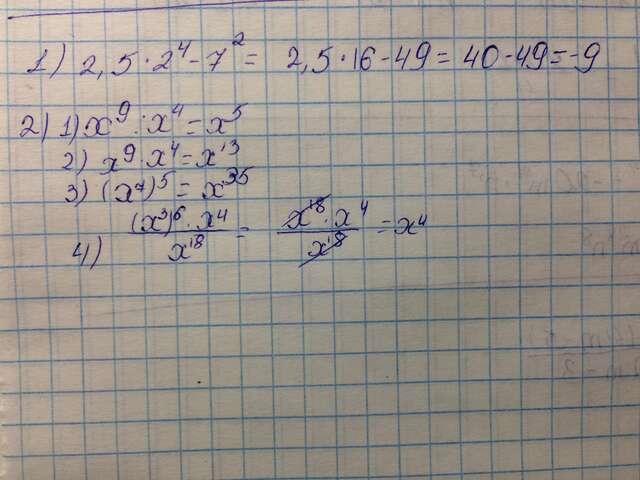 1) 2,5 · 2⁴ - 7² = 2,5 · 16 - 49 = 40 - 49 = -9
2) 1) x⁹ : x⁴ = x⁵
2) x⁹ · x⁴ = x¹³
3) (x⁹)⁵ = x³⁵
4) (x³)⁶ · x⁴ / x¹⁸ = x¹⁸ · x⁴ / x¹⁸ = x⁴